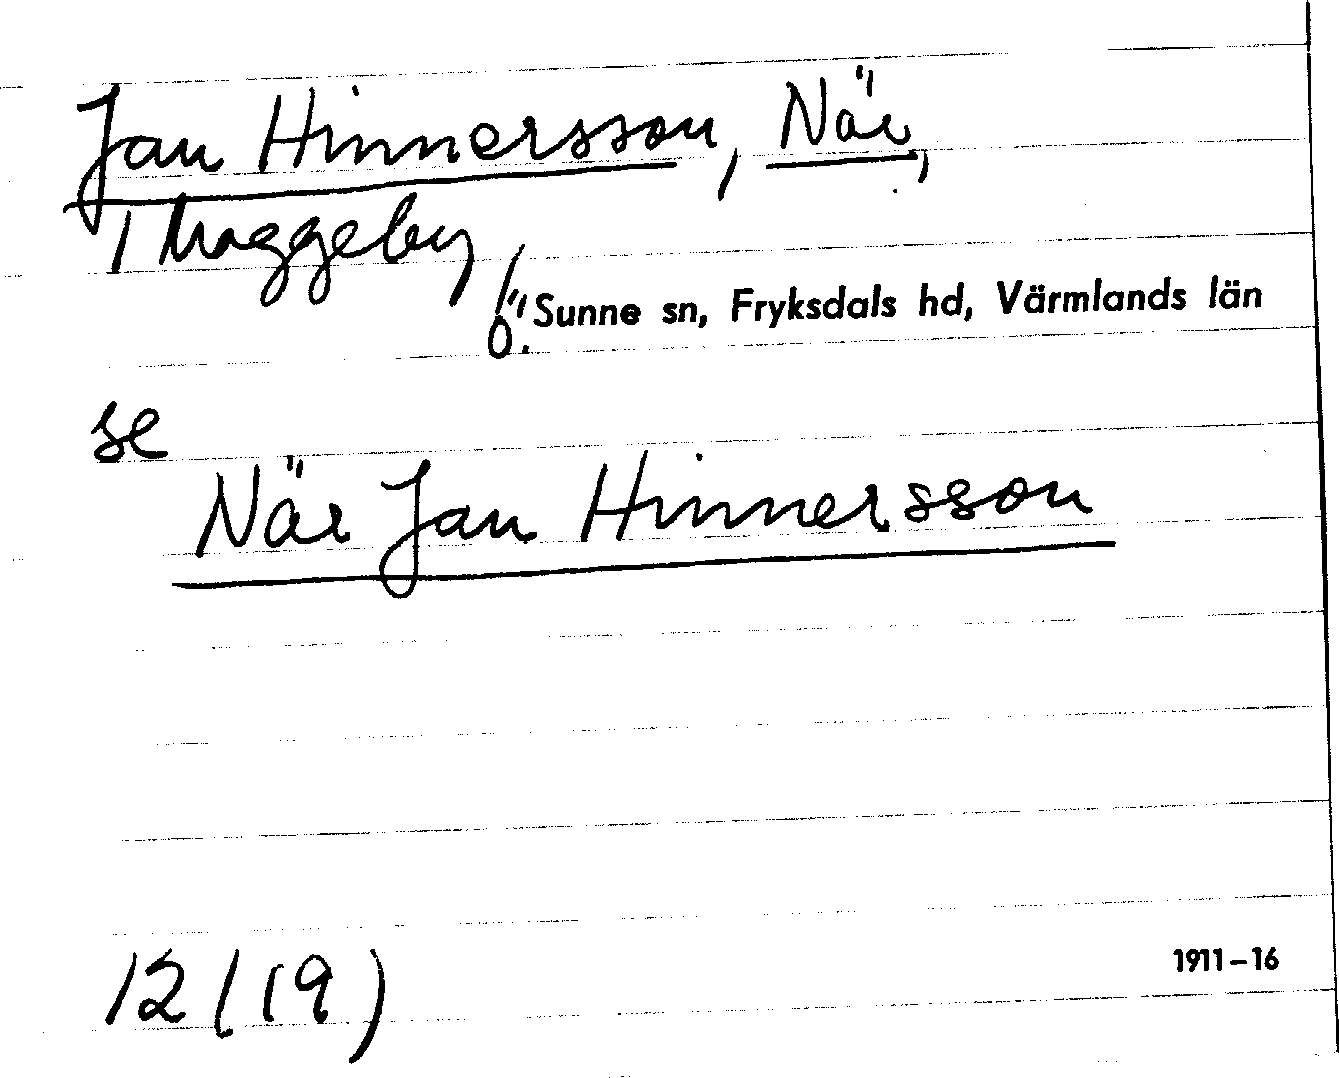 Jan Hinnersson, När,
1 Maggeby,
Ö. Sunne sn, Fryksdals hd, Värmlands län
se
När Jan Hinnersson
12 (19)
1911-16